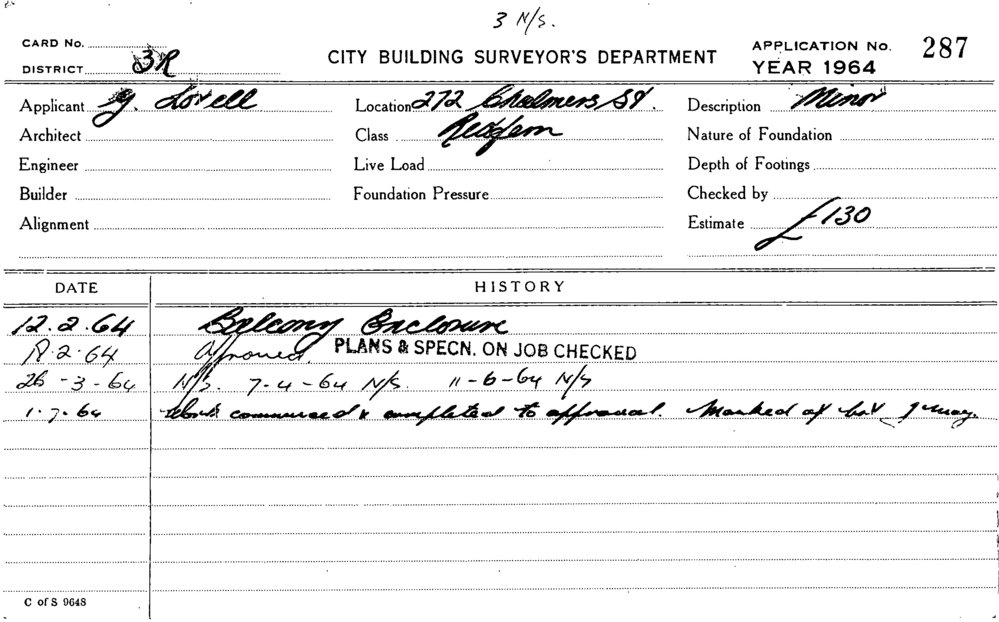 3 N/S.
CARD No.
DISTRICT 3R
CITY BUILDING SURVEYOR'S DEPARTMENT
APPLICATION No. 287
YEAR 1964
Applicant G. Lovell
Location 272 Chalmers St.
Description Minor
Architect
Class Redfern
Nature of Foundation
Engineer
Live Load
Depth of Footings
Builder
Foundation Pressure
Checked by
Alignment
Estimate £130
DATE HISTORY
12.2.64 Balcony Enclosure
2.64 Approved PLANS & SPECN. ON JOB CHECKED
26-3-64 N/S. 7-4-64 N/S. 11-6-64 N/S
1.7.64 Work commenced & completed to approval. Marked off
C of S 9648